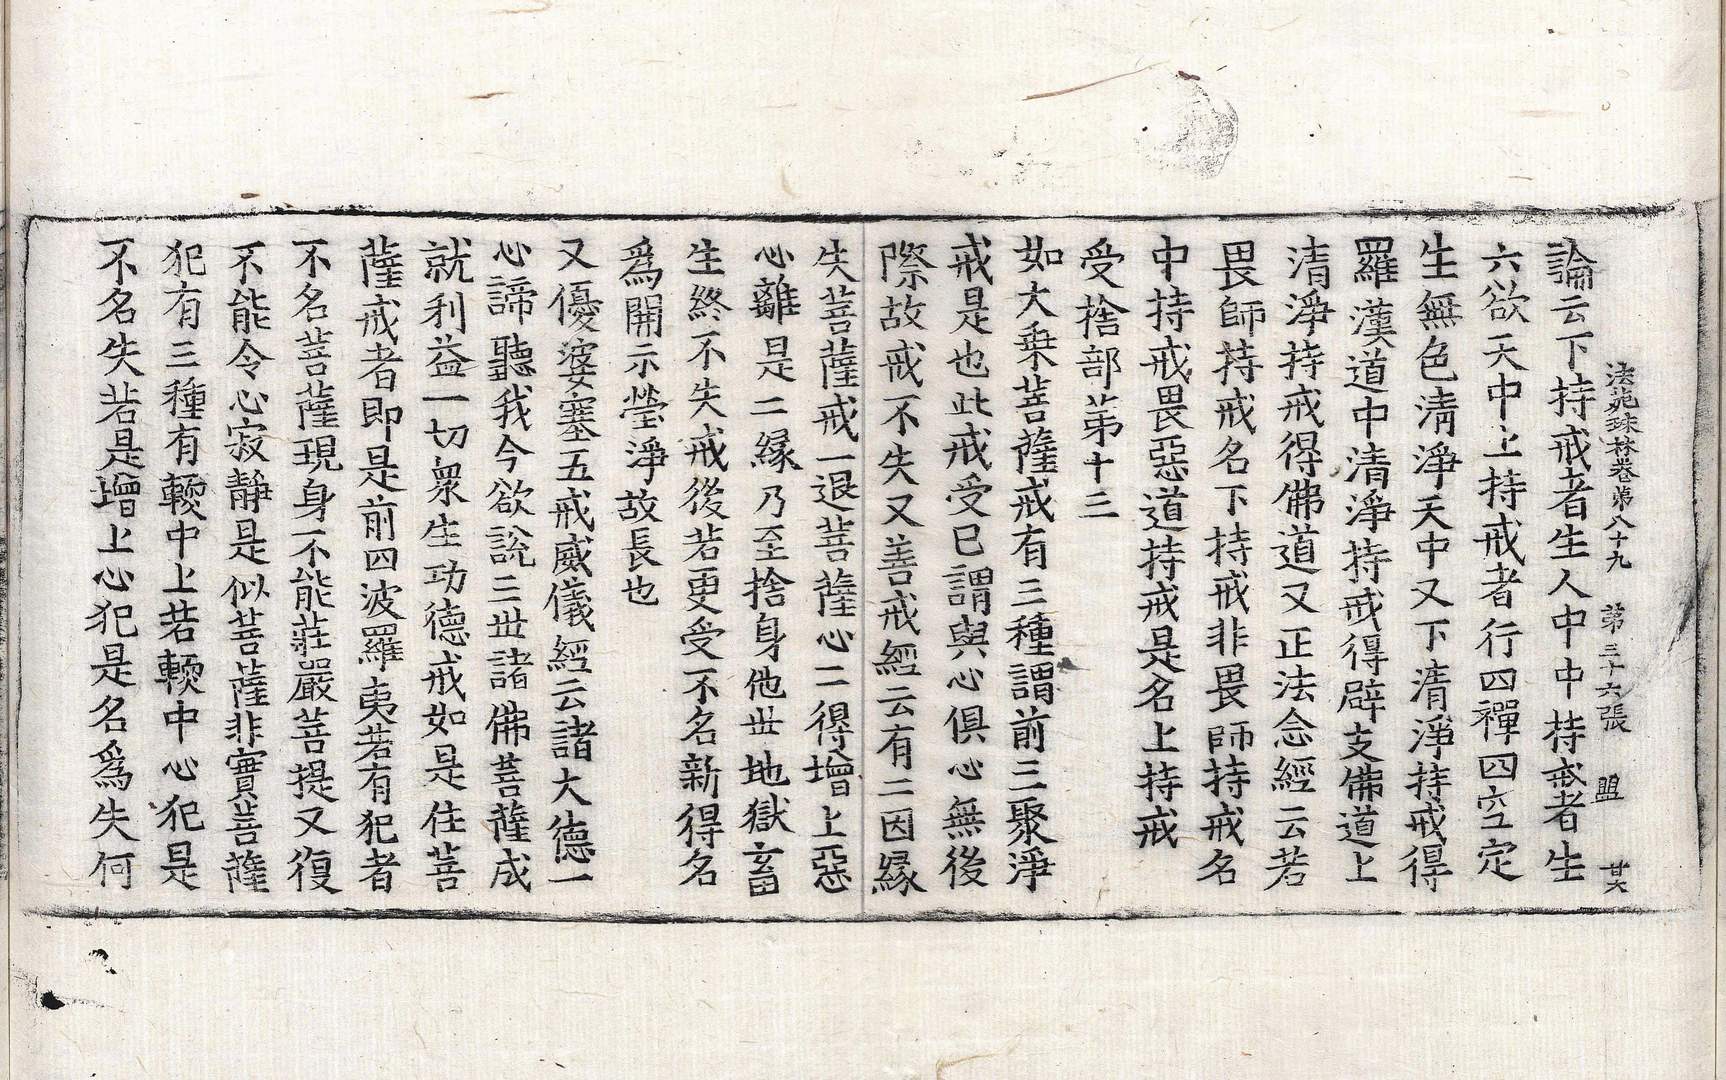 法苑珠林卷第八十九 第三十六張 盟 廿六
論云下持戒者生人中中持戒者生
六欲天中上持戒者行四禪四空定
生無色清淨天中又下清淨持戒得
羅漢道中清淨持戒得辟支佛道上
清淨持戒得佛道又正法念經云若
畏師持戒名下持戒非畏師持戒名
中持戒畏惡道持戒是名上持戒
受捨部苐十三
如大乗菩薩戒有三種謂前三聚淨
戒是也此戒受已謂與心俱心無後
際故戒不失又善戒經云有二因縁
失菩薩戒一退菩薩心二得增上惡
心離是二縁乃至捨身他世地獄畜
生終不失戒後若更受不名新得名
爲開示瑩淨故長也
又優婆塞五戒威儀經云諸大德一
心諦聽我今欲說三世諸佛菩薩成
就利益一切衆生功德戒如是住菩
薩戒者即是前四波羅夷若有犯者
不名菩薩現身不能莊嚴菩提又復
不能令心寂靜是似菩薩非實菩薩
犯有三種有輭中上若輭中心犯是
不名失若是增上心犯是名爲失何